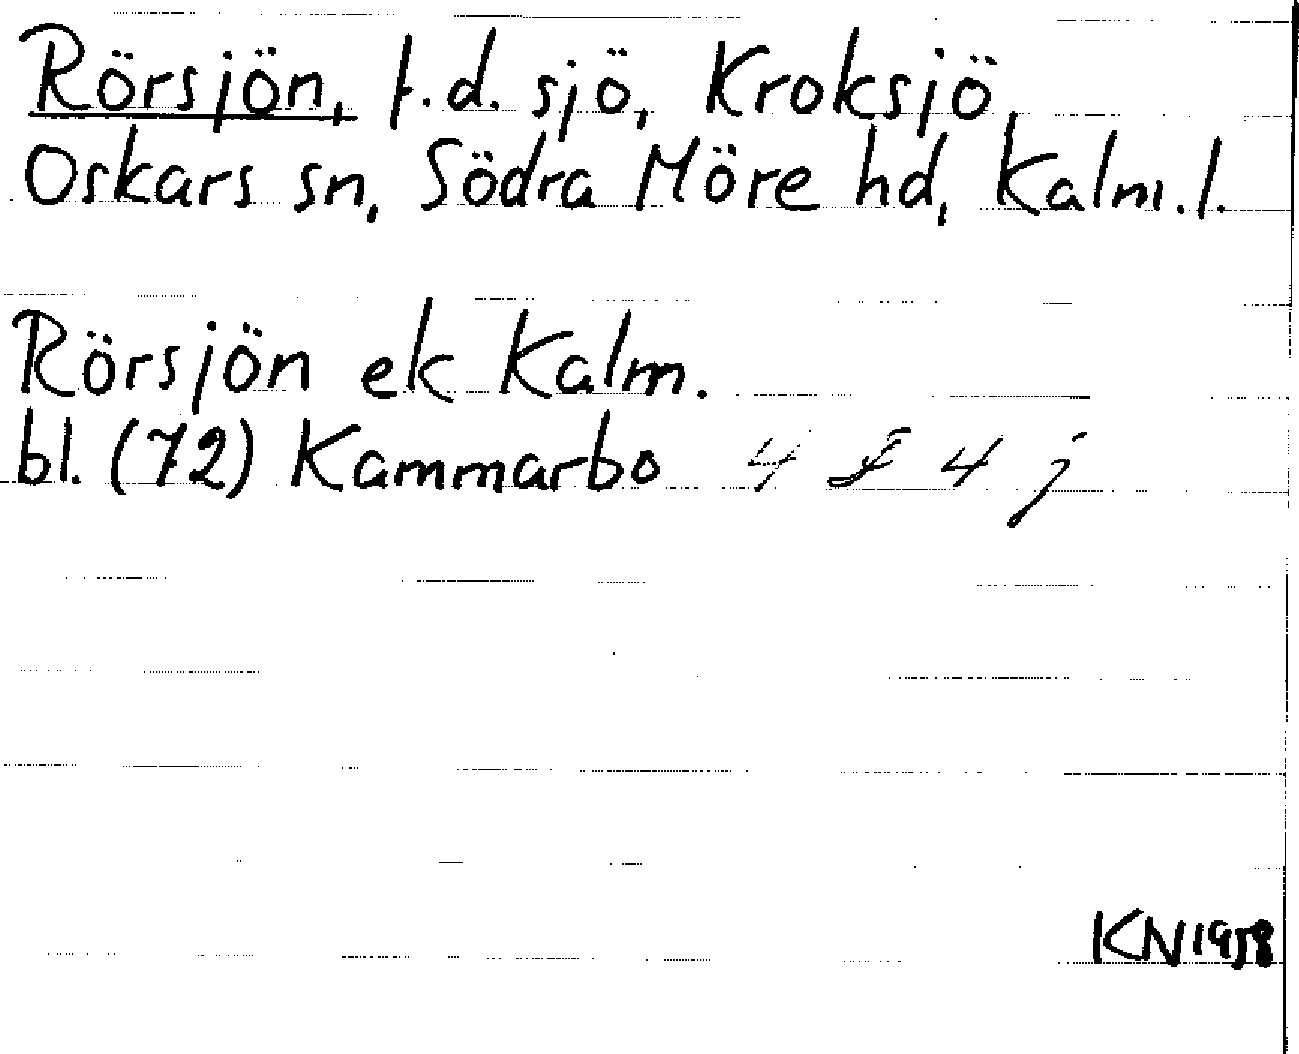 Rörsjön, f.d. sjö, Kroksjö
Oskars sn, Södra Möre hd, Kalm. l.
Rörsjön ek Kalm.
bl. (72) Kammarbo 4 f 4 j
KN 1958